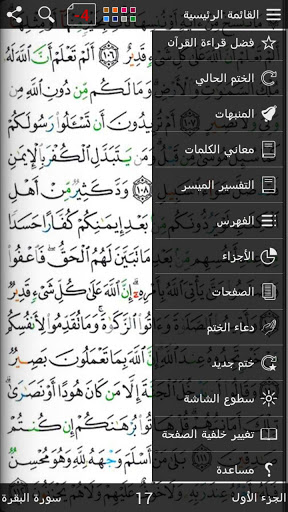 القائمة الرئيسية
-4
فضل قراءة القرآن
الختم الحالي
المنبهات
معاني الكلمات
التفسير الميسر
الفهرس
الأجزاء
الصفحات
دعاء الختم
ختم جديد
سطوع الشاشة
تغيير خلفية الصفحة
مساعدة
قَدِيرٌ ١٠٦ أَلَمْ تَعْلَمْ أَنَّ ٱللَّهَ لَهُۥ
وَمَا لَكُم مِّن دُونِ ٱللَّهِ
تُرِيدُونَ أَن تَسْـَٔلُوا۟ رَسُولَكُمْ
وَمَن يَتَبَدَّلِ ٱلْكُفْرَ بِٱلْإِيمَـٰنِ
١٠٨ وَدَّ كَثِيرٌ مِّنْ أَهْلِ
بَعْدِ إِيمَـٰنِكُمْ كُفَّارًا حَسَدًا
مَا تَبَيَّنَ لَهُمُ ٱلْحَقُّ فَٱعْفُوا۟
بِأَمْرِهِۦٓ إِنَّ ٱللَّهَ عَلَىٰ كُلِّ شَىْءٍ قَدِيرٌ
وَءَاتُوا۟ ٱلزَّكَوٰةَ وَمَا تُقَدِّمُوا۟ لِأَنفُسِكُم
إِنَّ ٱللَّهَ بِمَا تَعْمَلُونَ بَصِيرٌ
ٱلْجَنَّةَ إِلَّا مَن كَانَ هُودًا أَوْ نَصَـٰرَىٰ
بُرْهَـٰنَكُمْ إِن كُنتُمْ
أَسْلَمَ وَجْهَهُۥ لِلَّهِ وَهُوَ مُحْسِنٌ
الجزء الأول
17
سورة البقرة